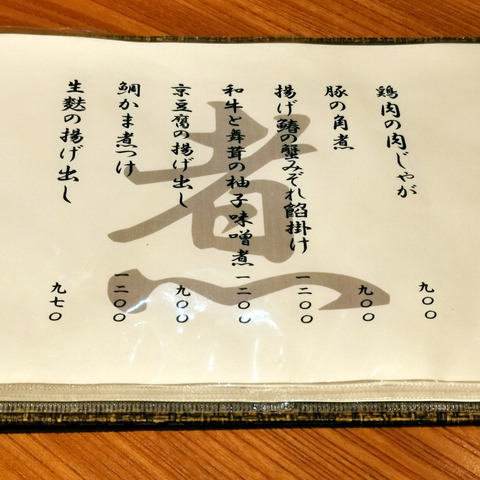 鶏肉の肉じゃが 九〇〇
豚の角煮 九〇〇
揚げ鰆の蟹みぞれ餡掛け 一二〇〇
和牛と舞茸の柚子味噌煮 一二〇〇
京豆腐の揚げ出し 九〇〇
鯛かま煮つけ 一二〇〇
生麩の揚げ出し 九七〇
煮